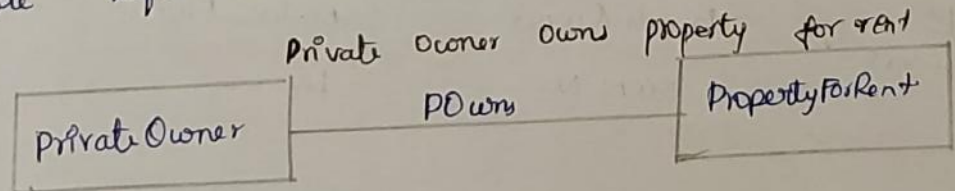 Private Owner Owns property for rent
POwns
PrivateOwner
PropertyForRent